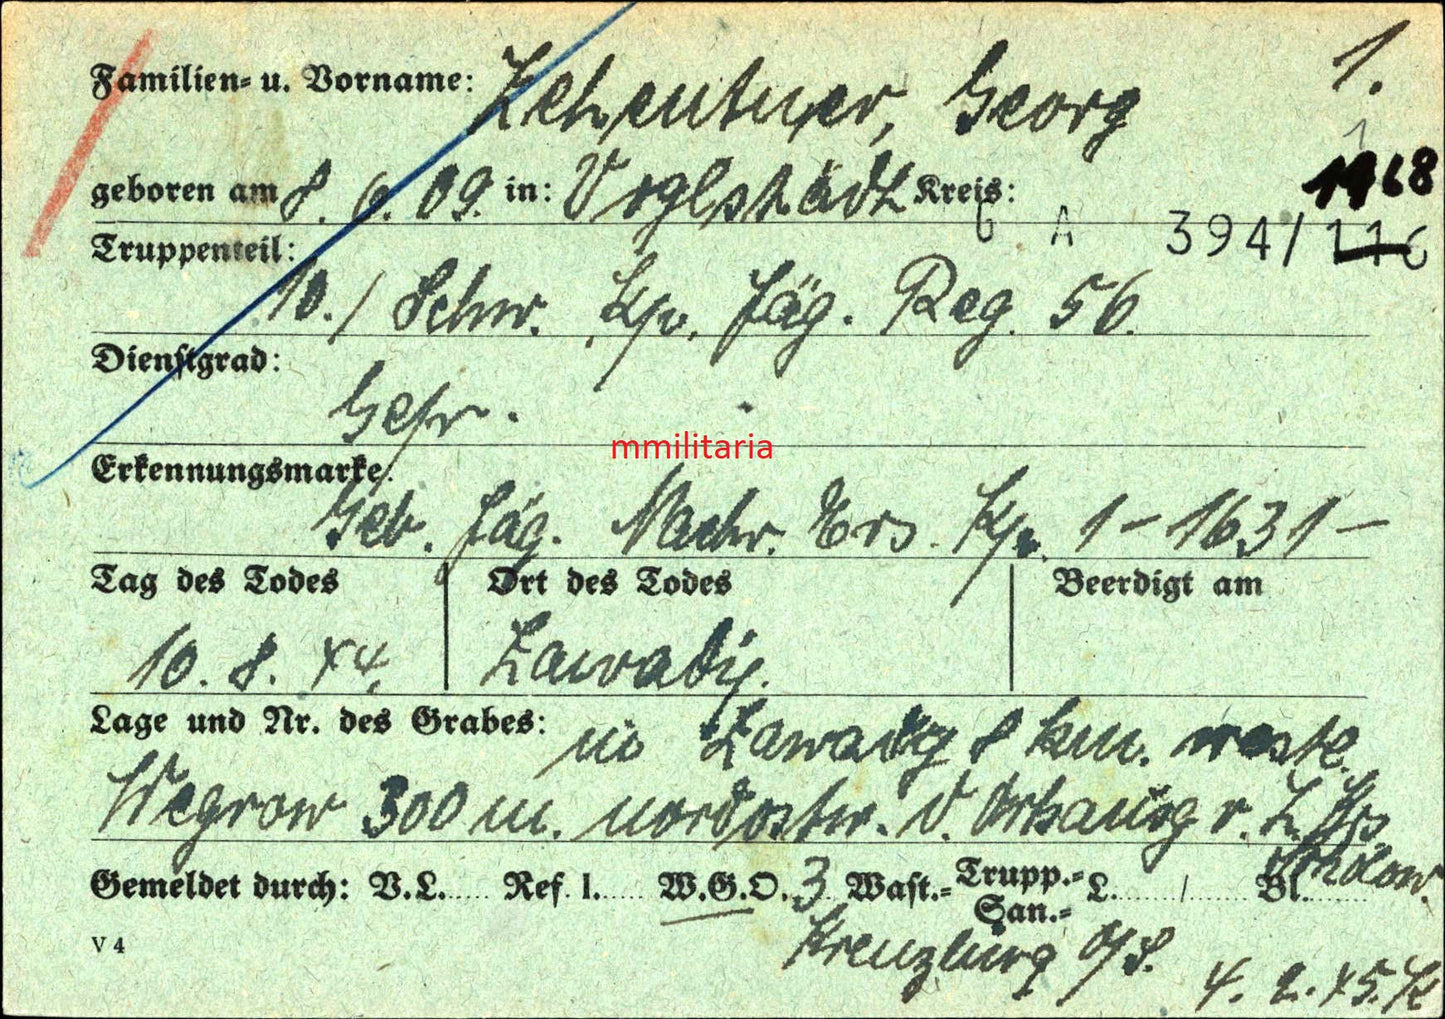 Familien- u. Vorname: Zehentner, Georg 1.
1
geboren am 8. 6. 09. in: Voglstädt Kreis: 1968
A 394/116
Truppenteil:
10./ Schw. Kp. Jäg. Reg. 56.
Dienstgrad:
Gefr.
mmilitaria
Erkennungsmarke:
Geb. Jäg. Nachr. Ers. Kp. 1 – 1631 –
Tag des Todes Ort des Todes Beerdigt am
10. 8. 44. Zawady.
Lage und Nr. des Grabes: in Zawady 8 km. westl.
Wegrow 300 m. nordostw. v. Ortsausg v. Z. Krs
Gemeldet durch: V.L. Ref. I. W.G.O. 3 Wast.= Trupp.= San.= L. / Bl.
Kreuzburg O/S.
V 4
4. 2. 45. K